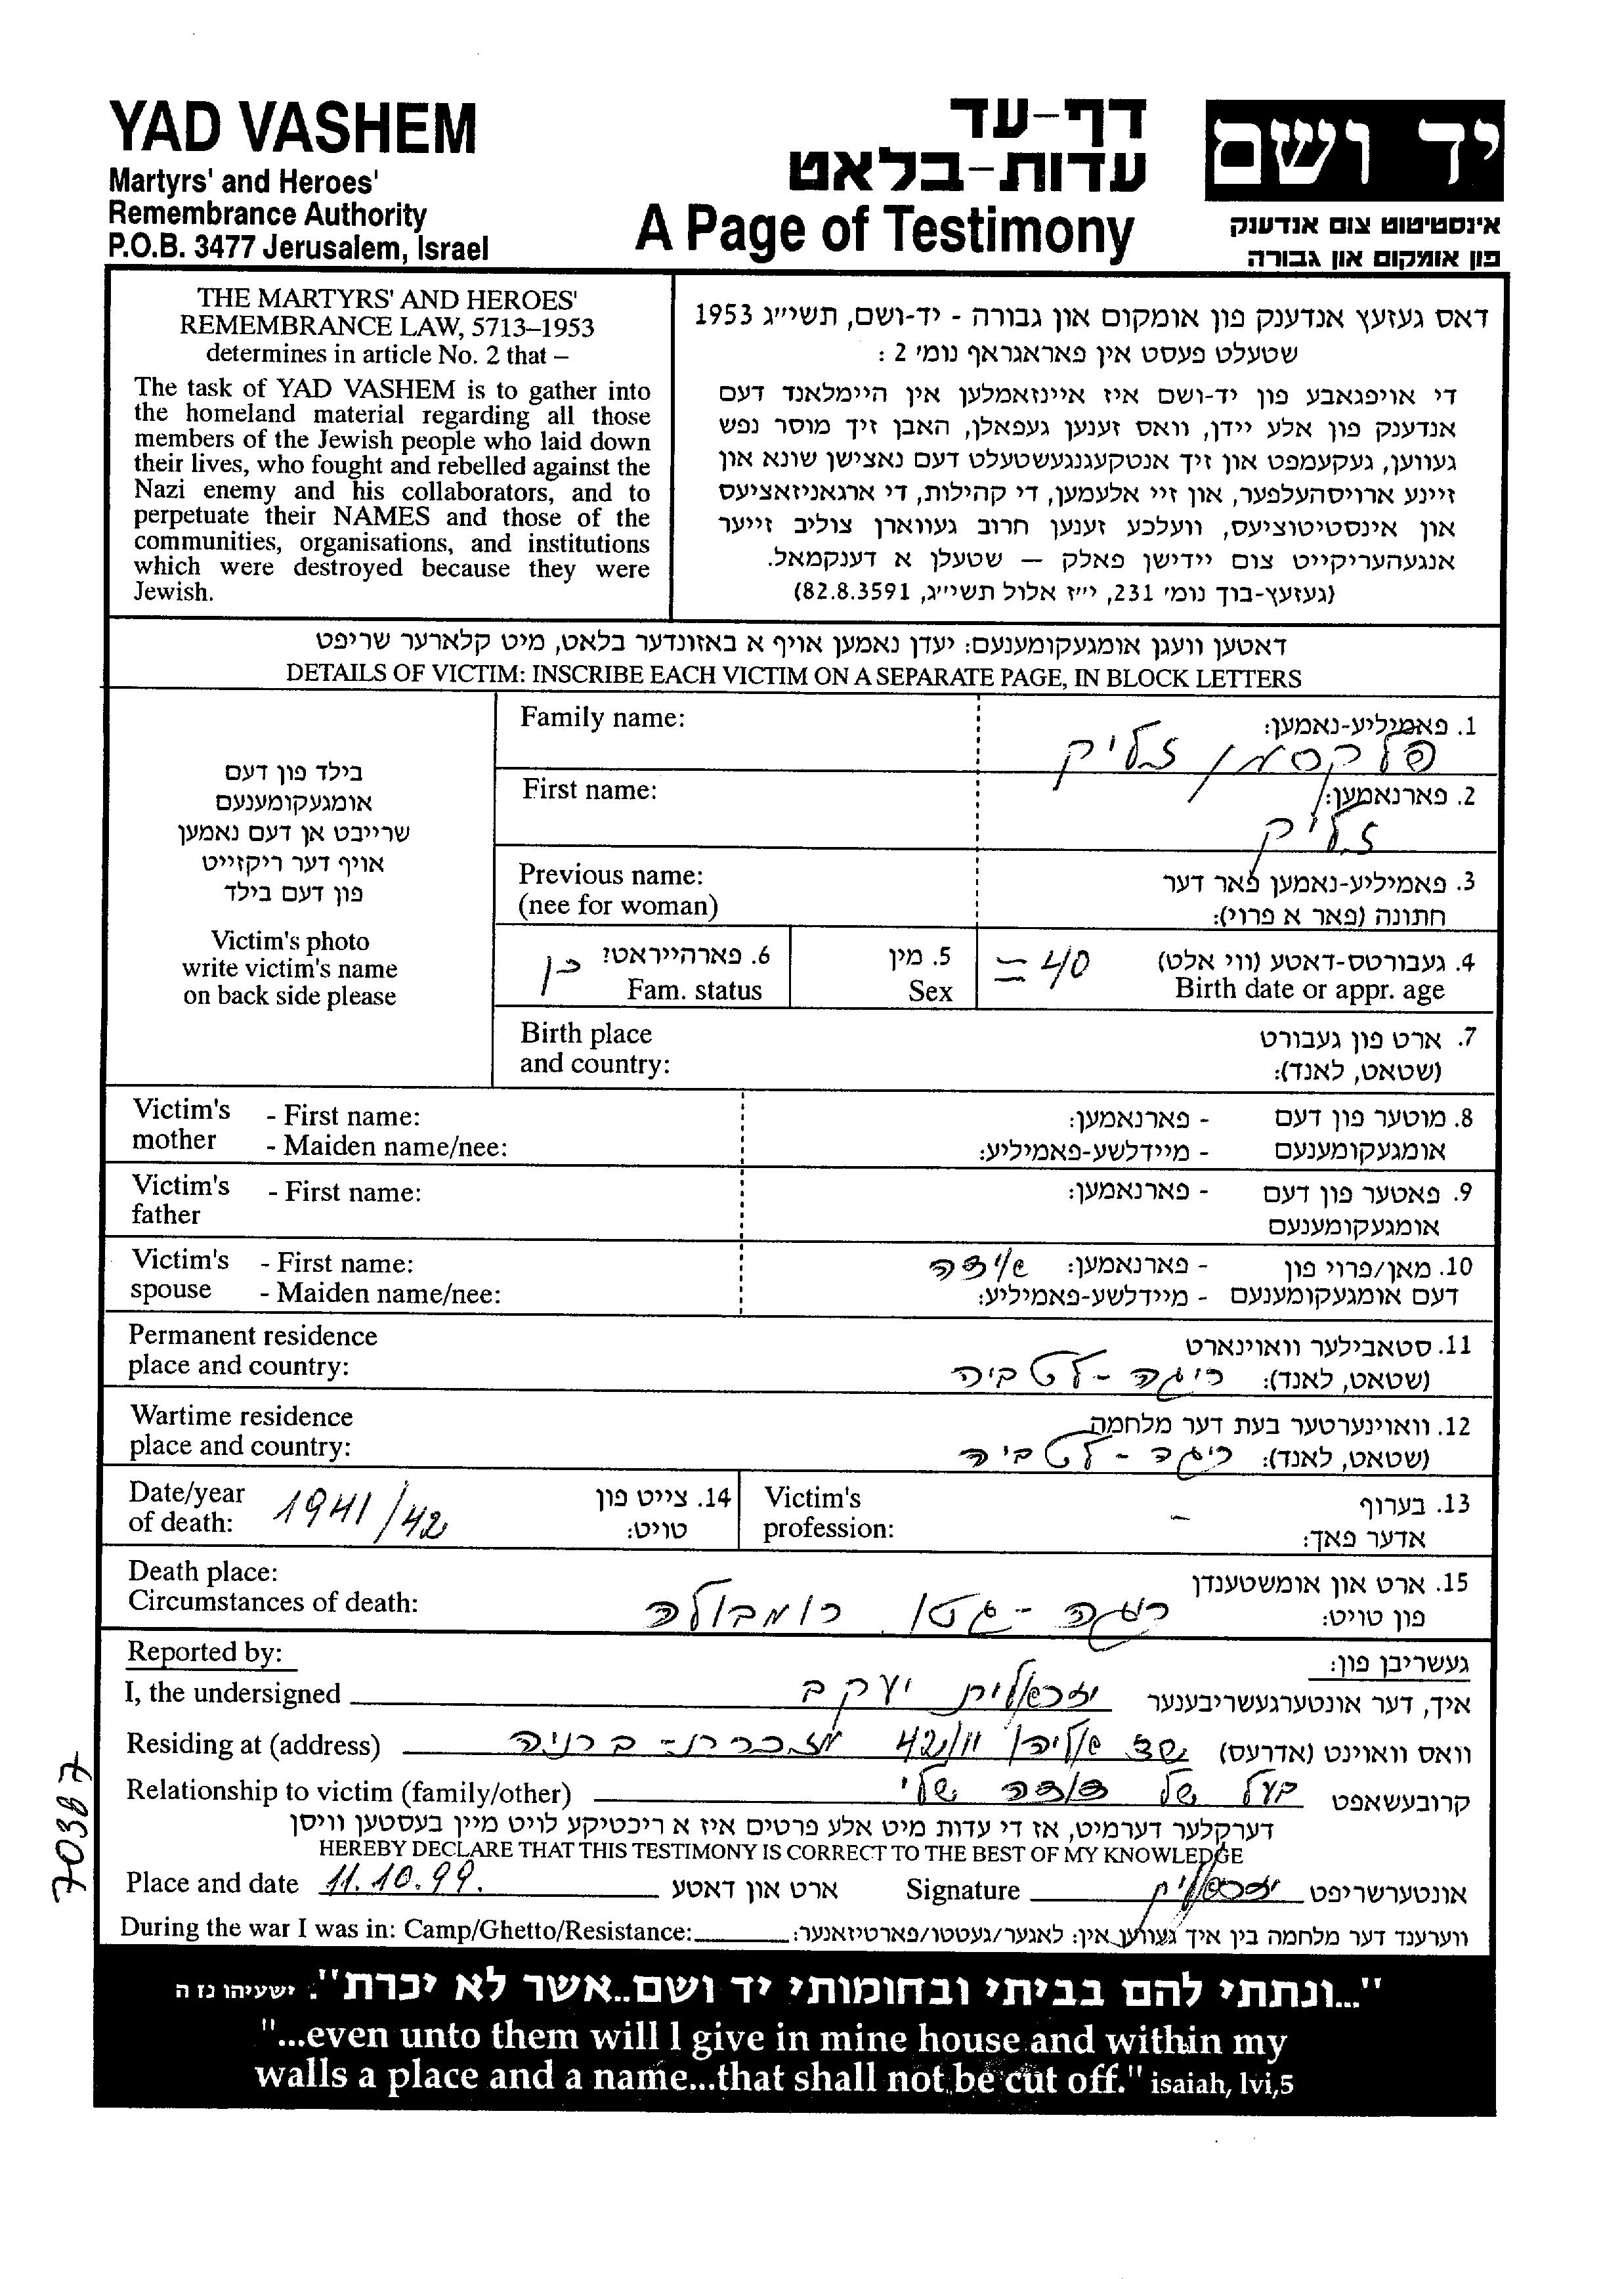 YAD VASHEM
Martyrs' and Heroes'
Remembrance Authority
P.O.B. 3477 Jerusalem, Israel
דף-עד
עדות-בלאט
A Page of Testimony
יד ושם
אינסטיטוט צום אנדענק
פון אומקום און גבורה
THE MARTYRS' AND HEROES'
REMEMBRANCE LAW, 5713–1953
determines in article No. 2 that –
The task of YAD VASHEM is to gather into
the homeland material regarding all those
members of the Jewish people who laid down
their lives, who fought and rebelled against the
Nazi enemy and his collaborators, and to
perpetuate their NAMES and those of the
communities, organisations, and institutions
which were destroyed because they were
Jewish.
דאס געזעץ אנדענק פון אומקום און גבורה - יד-ושם, תשי״ג 1953
שטעלט פעסט אין פאראגראף נומ׳ 2 :
די אויפגאבע פון יד-ושם איז איינזאמלען אין היימלאנד דעם
אנדענק פון אלע יידן, וואס זענען געפאלן, האבן זיך מוסר נפש
געווען, געקעמפט און זיך אנטקעגנגעשטעלט דעם נאצישן שונא און
זיינע ארויסהעלפער, און זיי אלעמען, די קהילות, די ארגאניזאציעס
און אינסטיטוציעס, וועלכע זענען חרוב געווארן צוליב זייער
אנגעהעריקייט צום יידישן פאלק – שטעלן א דענקמאל.
(געזעץ-בוך נומ׳ 231, י״ז אלול תשי״ג, 82.8.3591)
דאטען וועגן אומגעקומענעם: יעדן נאמען אויף א באזונדער בלאט, מיט קלארער שריפט
DETAILS OF VICTIM: INSCRIBE EACH VICTIM ON A SEPARATE PAGE, IN BLOCK LETTERS
בילד פון דעם
אומגעקומענעם
שרייבט אן דעם נאמען
אויף דער ריקזייט
פון דעם בילד
Victim's photo
write victim's name
on back side please
Family name:
1. פאמיליע-נאמען:
פלקסמן זליק
First name:
2. פארנאמען:
זליק
Previous name:
(nee for woman)
3. פאמיליע-נאמען פאר דער
חתונה (פאר א פרוי):
4. געבורטס-דאטע (ווי אלט) = 40
Birth date or appr. age
5. מין
Sex
6. פארהייראט? כן
Fam. status
Birth place
and country:
7. ארט פון געבורט
(שטאט, לאנד):
Victim's - First name:
mother - Maiden name/nee:
8. מוטער פון דעם - פארנאמען:
אומגעקומענעם - מיידלשע-פאמיליע:
Victim's - First name:
father
9. פאטער פון דעם - פארנאמען:
אומגעקומענעם
Victim's - First name:
spouse - Maiden name/nee:
10. מאן/פרוי פון - פארנאמען:
דעם אומגעקומענעם - מיידלשע-פאמיליע:
Permanent residence
place and country:
11. סטאבילער וואוינארט
(שטאט, לאנד): ריגה - לטביה
Wartime residence
place and country:
12. וואוינערטער בעת דער מלחמה
(שטאט, לאנד): ריגה - לטביה
Date/year
of death: 1941/42
14. צייט פון
טויט:
Victim's
profession:
13. בערוף -
אדער פאך:
Death place:
Circumstances of death:
15. ארט און אומשטענדן
פון טויט: ריגה - גטו רומבולה
Reported by:
געשריבן פון:
I, the undersigned
איך, דער אונטערגעשריבענער יזראלית יעקב
Residing at (address)
וואס וואוינט (אדרעס) 42/11 מזכרת-בתיה
Relationship to victim (family/other)
קרובעשאפט בעל של דודה שלי
דערקלער דערמיט, אז די עדות מיט אלע פרטים איז א ריכטיקע לויט מיין בעסטען וויסן
HEREBY DECLARE THAT THIS TESTIMONY IS CORRECT TO THE BEST OF MY KNOWLEDGE
Place and date 11.10.99. ארט און דאטע
Signature אונטערשריפט
During the war I was in: Camp/Ghetto/Resistance: ווערענד דער מלחמה בין איך געווען אין: לאגער/געטטו/פארטיזאנער:
"...ונתתי להם בביתי ובחומותי יד ושם..אשר לא יכרת". ישעיהו נז ה
"...even unto them will I give in mine house and within my
walls a place and a name...that shall not be cut off." isaiah, lvi,5
70387